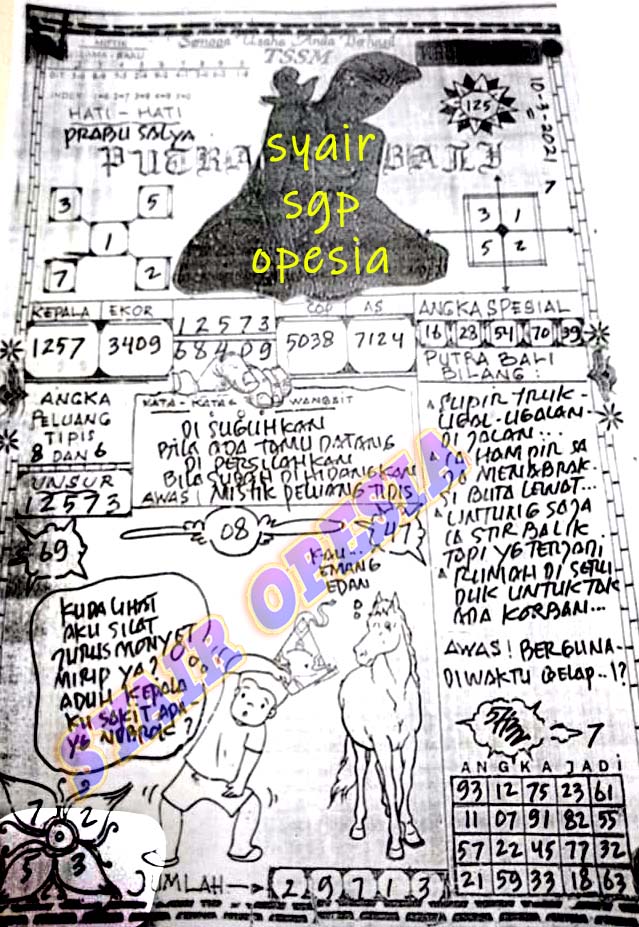 MISTIK
Semoga Usaha Anda Berhasil
TSSM
HATI - HATI
PRABU SALYA
PUTRA BALI
syair
sgp
opesia
125
10-3-2021
3 5
1
7 2
3 1
5 2
7
KEPALA EKOR
1257 3409
12573
68409
COP AS
5038 7124
ANGKA SPESIAL
16 28 54 70 39
PUTRA BALI
BILANG :
ANGKA
PELUANG
TIPIS
8 DAN 6
UNSUR
12573
KATA - KATA WANGSIT
DI SUGUHKAN
BILA ADA TAMU DATANG
DI PERSILAHKAN
BILA SUDAH DI HIDANGKAN
AWAS! MISTIK PELUANG TIPIS
SUPIR TRUK
UGAL-UGALAN
DI JALAN...
IA HAMPIR SA
JA MENABRAK
SI BUTA LEWAT...
UNTUNG SAJA
IA STIR BALIK
TAPI YG TERJADI
RUMAH DI SERU
DUK UNTUK TAK
ADA KORBAN...
AWAS! BERGUNA
DIWAKTU GELAP..!?
69
08
47
KAU...
EMANG
EDAN
KUDA LIHAT
AKU SILAT
JURUS MONYET
MIRIP YA?
ADUH KEPALA
KU SAKIT ADA
YG NABROK?
SYAIR OPESIA
7
ANGKA JADI
93 12 75 23 61
11 07 91 82 55
57 22 45 77 32
21 59 33 18 63
7 2
5 3
JUMLAH → 2 9 7 1 3